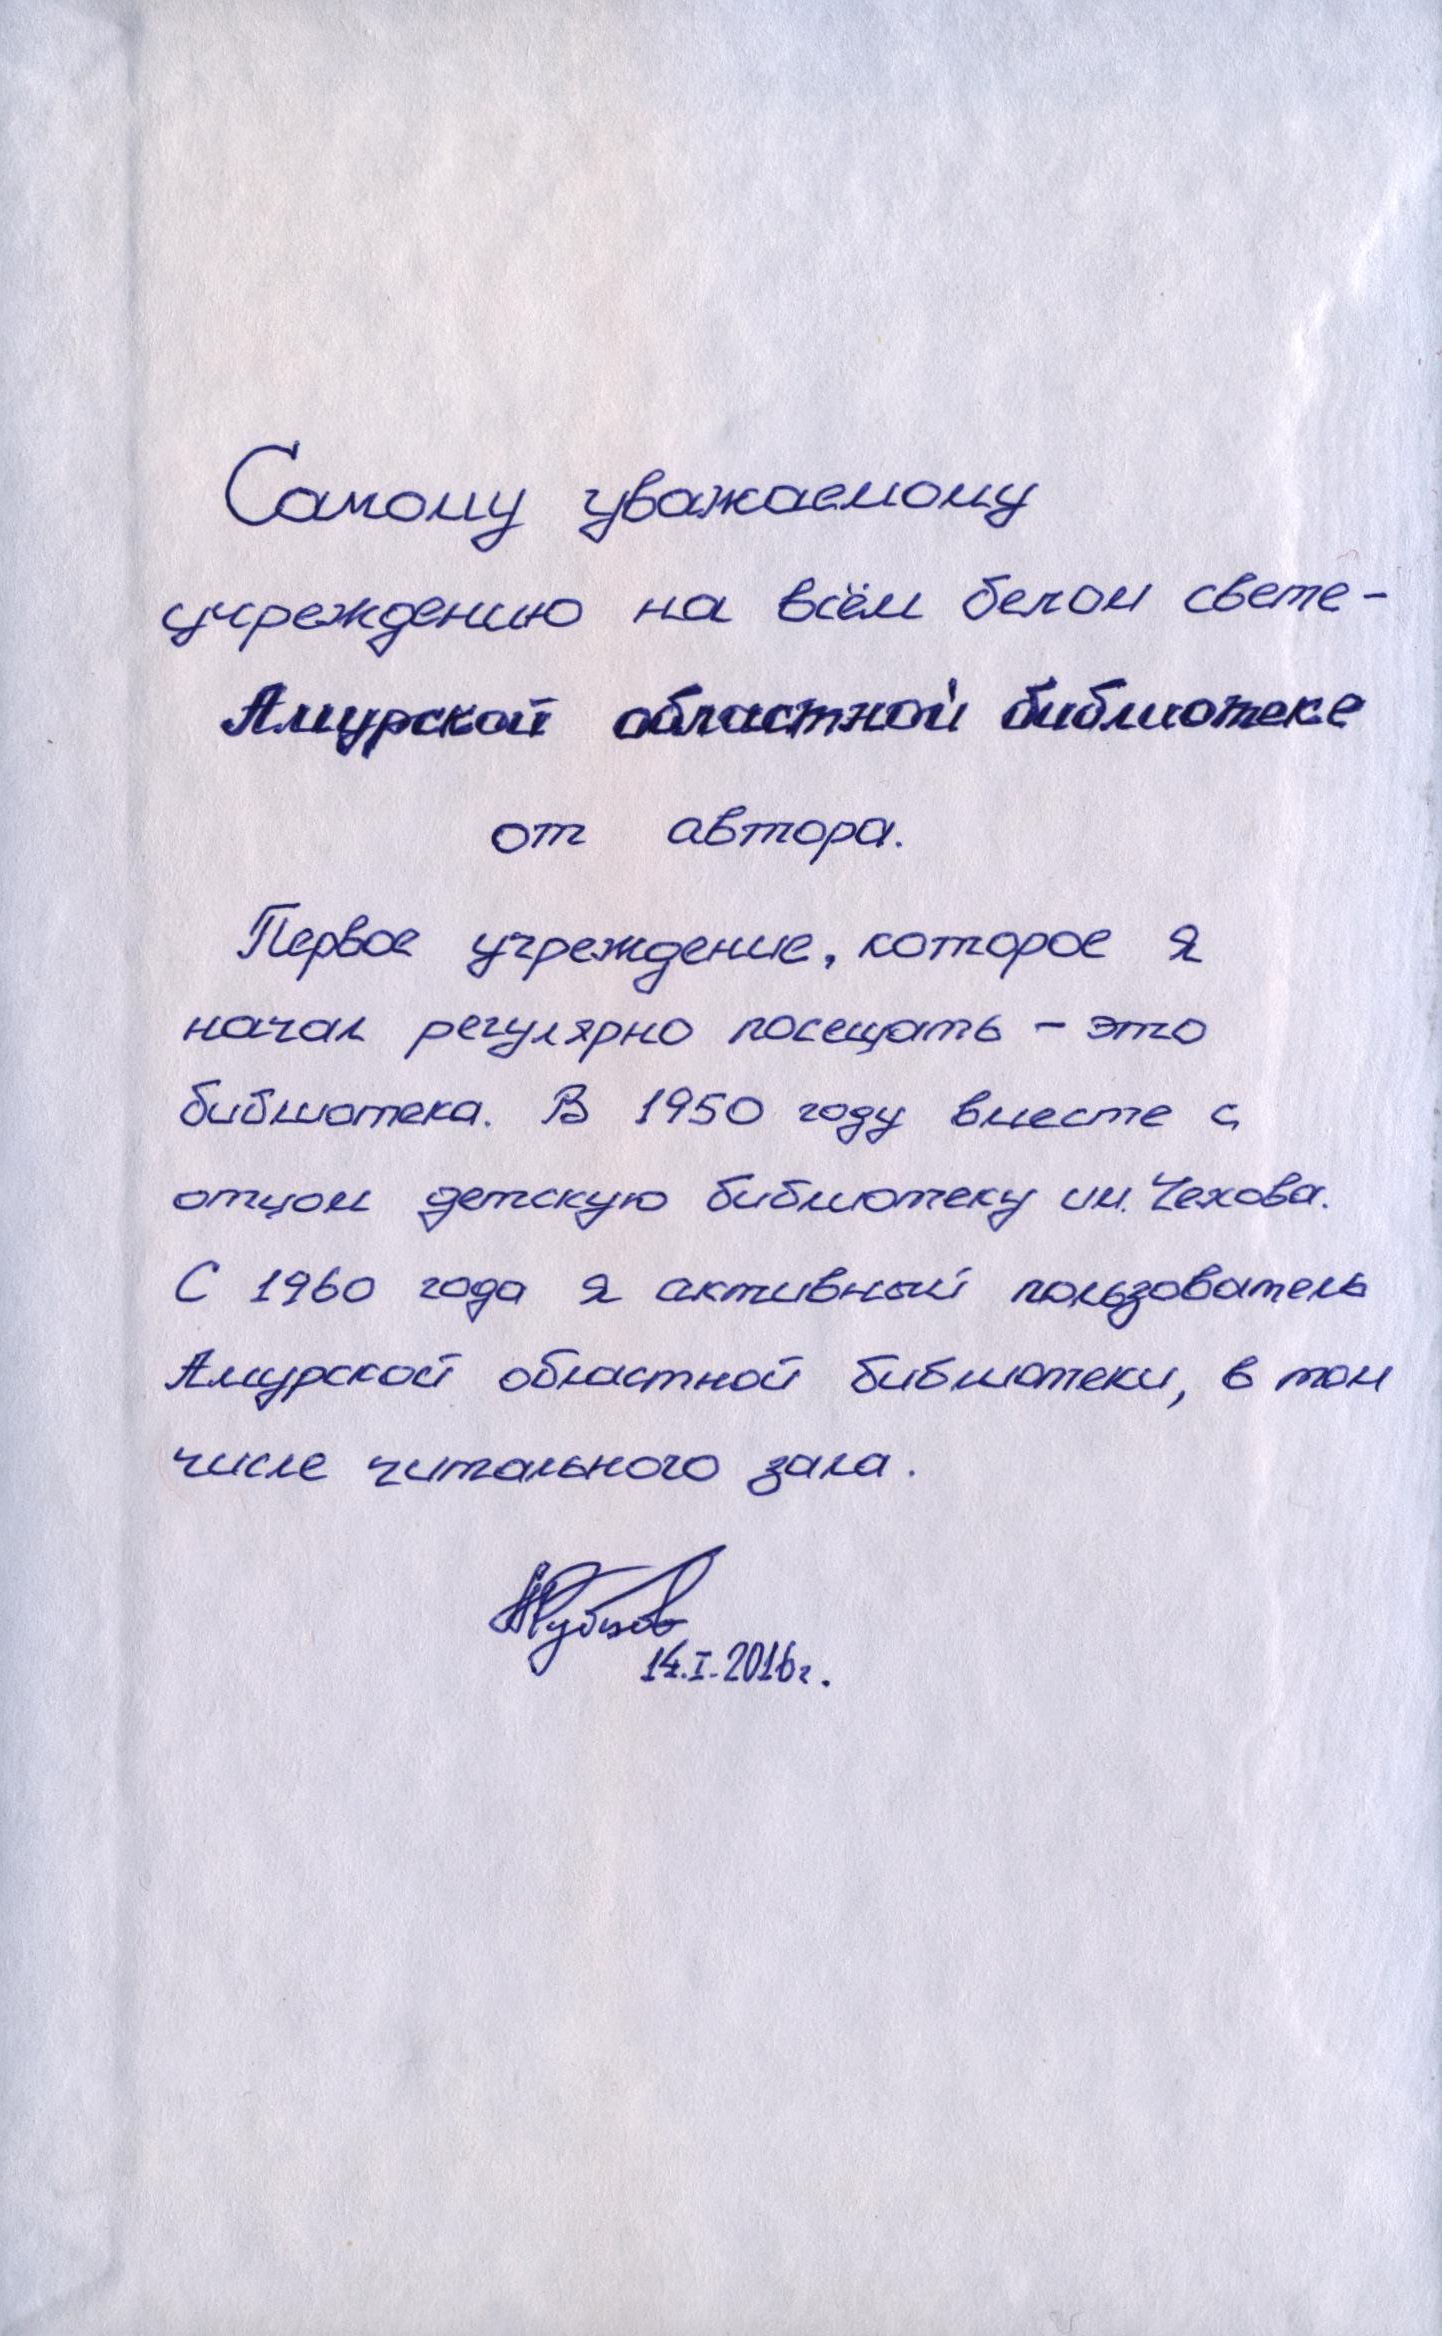 Самому уважаемому
учреждению на всём белом свете –
Амурской областной библиотеке
от автора.
Первое учреждение, которое я
начал регулярно посещать – это
библиотека. В 1950 году вместе с
отцом детскую библиотеку им. Чехова.
С 1960 года я активный пользователь
Амурской областной библиотеки, в том
числе читального зала.
14.I.2016г.